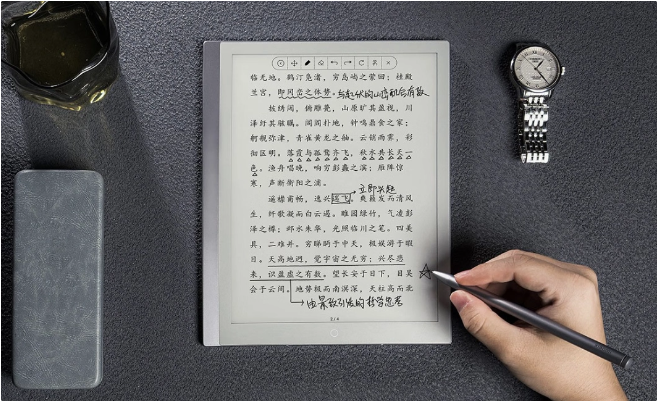 临无地。鹤汀凫渚，穷岛屿之萦回；桂殿
兰宫，即冈峦之体势。与起伏的山峦配合有致
披绣闼，俯雕甍，山原旷其盈视，川
泽纡其骇瞩。闾阎扑地，钟鸣鼎食之家；
舸舰弥津，青雀黄龙之舳。云销雨霁，彩
彻区明。落霞与孤鹜齐飞，秋水共长天一
色。渔舟唱晚，响穷彭蠡之滨；雁阵惊
寒，声断衡阳之浦。
立即兴起
遥襟甫畅，逸兴遄飞。爽籁发而清风
生，纤歌凝而白云遏。睢园绿竹，气凌彭
泽之樽；邺水朱华，光照临川之笔。四美
具，二难并。穷睇眄于中天，极娱游于暇
日。天高地迥，觉宇宙之无穷；兴尽悲
来，识盈虚之有数。望长安于日下，目吴
会于云间。地势极而南溟深，天柱高而北
由景致引发的哲学思考